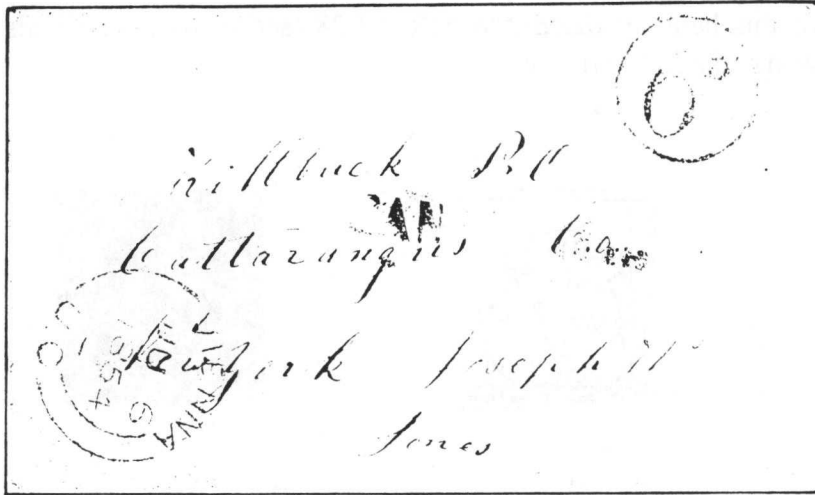 6 D
Killbuck P.O
CAN
Cattaraugus Co
New York Joseph W
Jones
VIENNA
6
1854
U.C